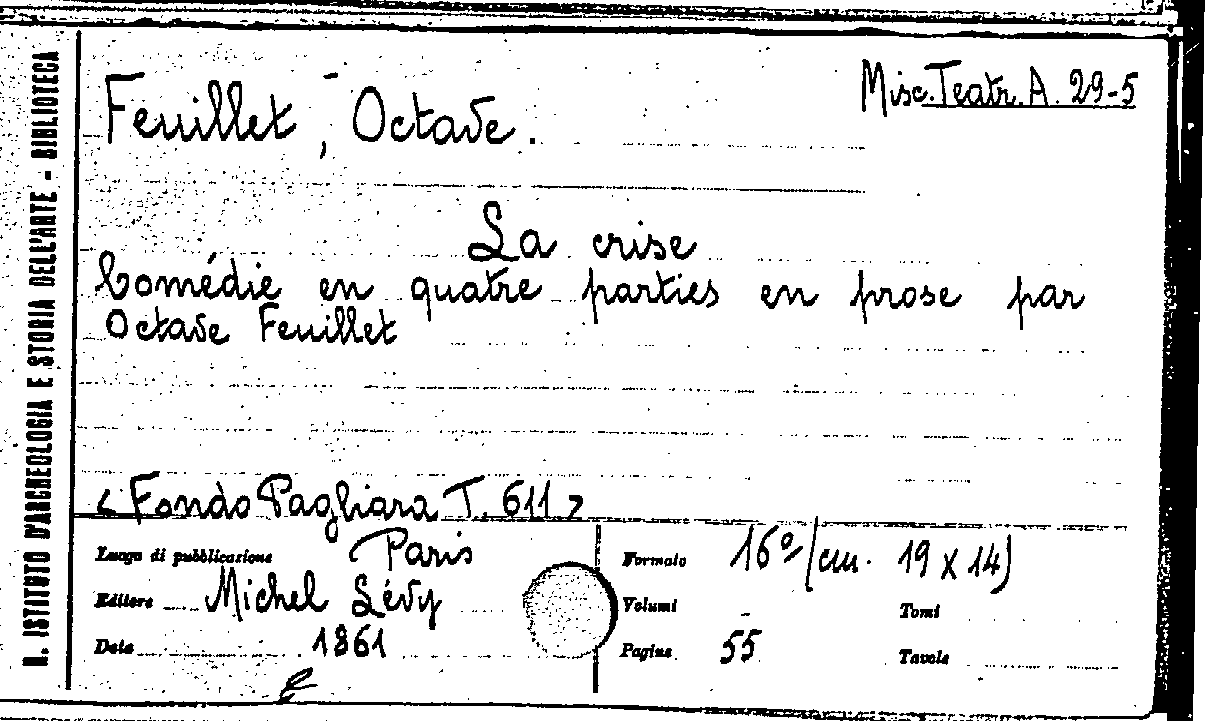 R. ISTITUTO D'ARCHEOLOGIA E STORIA DELL'ARTE - BIBLIOTECA
Misc. Teatr. A. 29-5
Feuillet, Octave.
La crise
Comédie en quatre parties en prose par
Octave Feuillet
< Fondo Pagliara T. 611 >
Luogo di pubblicazione Paris
Editore Michel Lévy
Data 1861
Formato 16º (cm. 19 x 14)
Volumi - Tomi
Pagine 55 Tavole